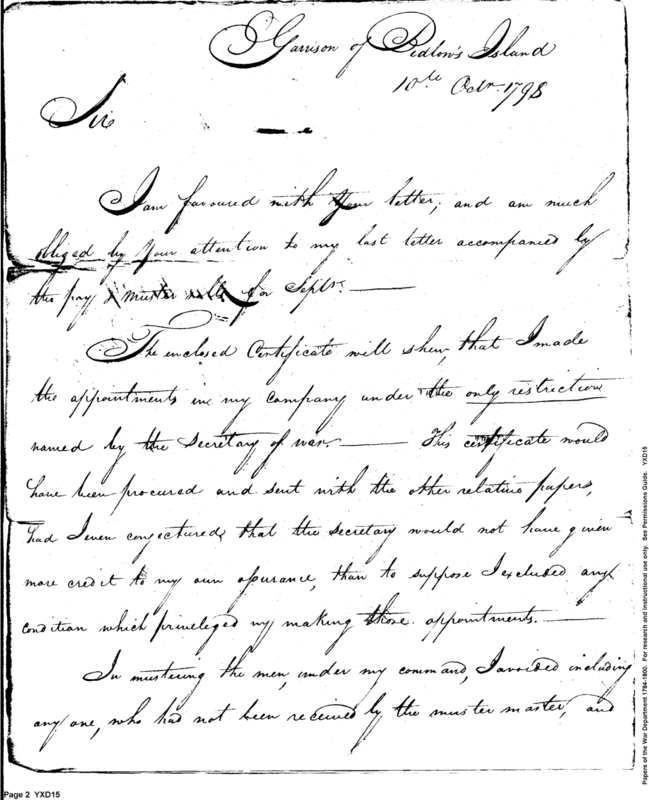 Garrison of Bedlow's Island
10th Octr. 1798
Sir
I am favoured with your letter; and am much
obliged by your attention to my last letter accompanied by
the pay & muster rolls for Septr.
The enclosed Certificate will shew, that I made
the appointments in my company under the only restriction
named by the Secretary of war. This certificate would
have been procured and sent with the other relative papers,
had I even conjectured, that the secretary would not have given
more credit to my own assurance, than to suppose I excluded any
condition which priviledged my making those appointments.
In mustering the men, under my command, I avoided including
any one, who had not been received by the muster master, and
Page 2 YXD15
Papers of the War Department 1784-1800. For research and instructional use only. See Permissions Guide. YXD15